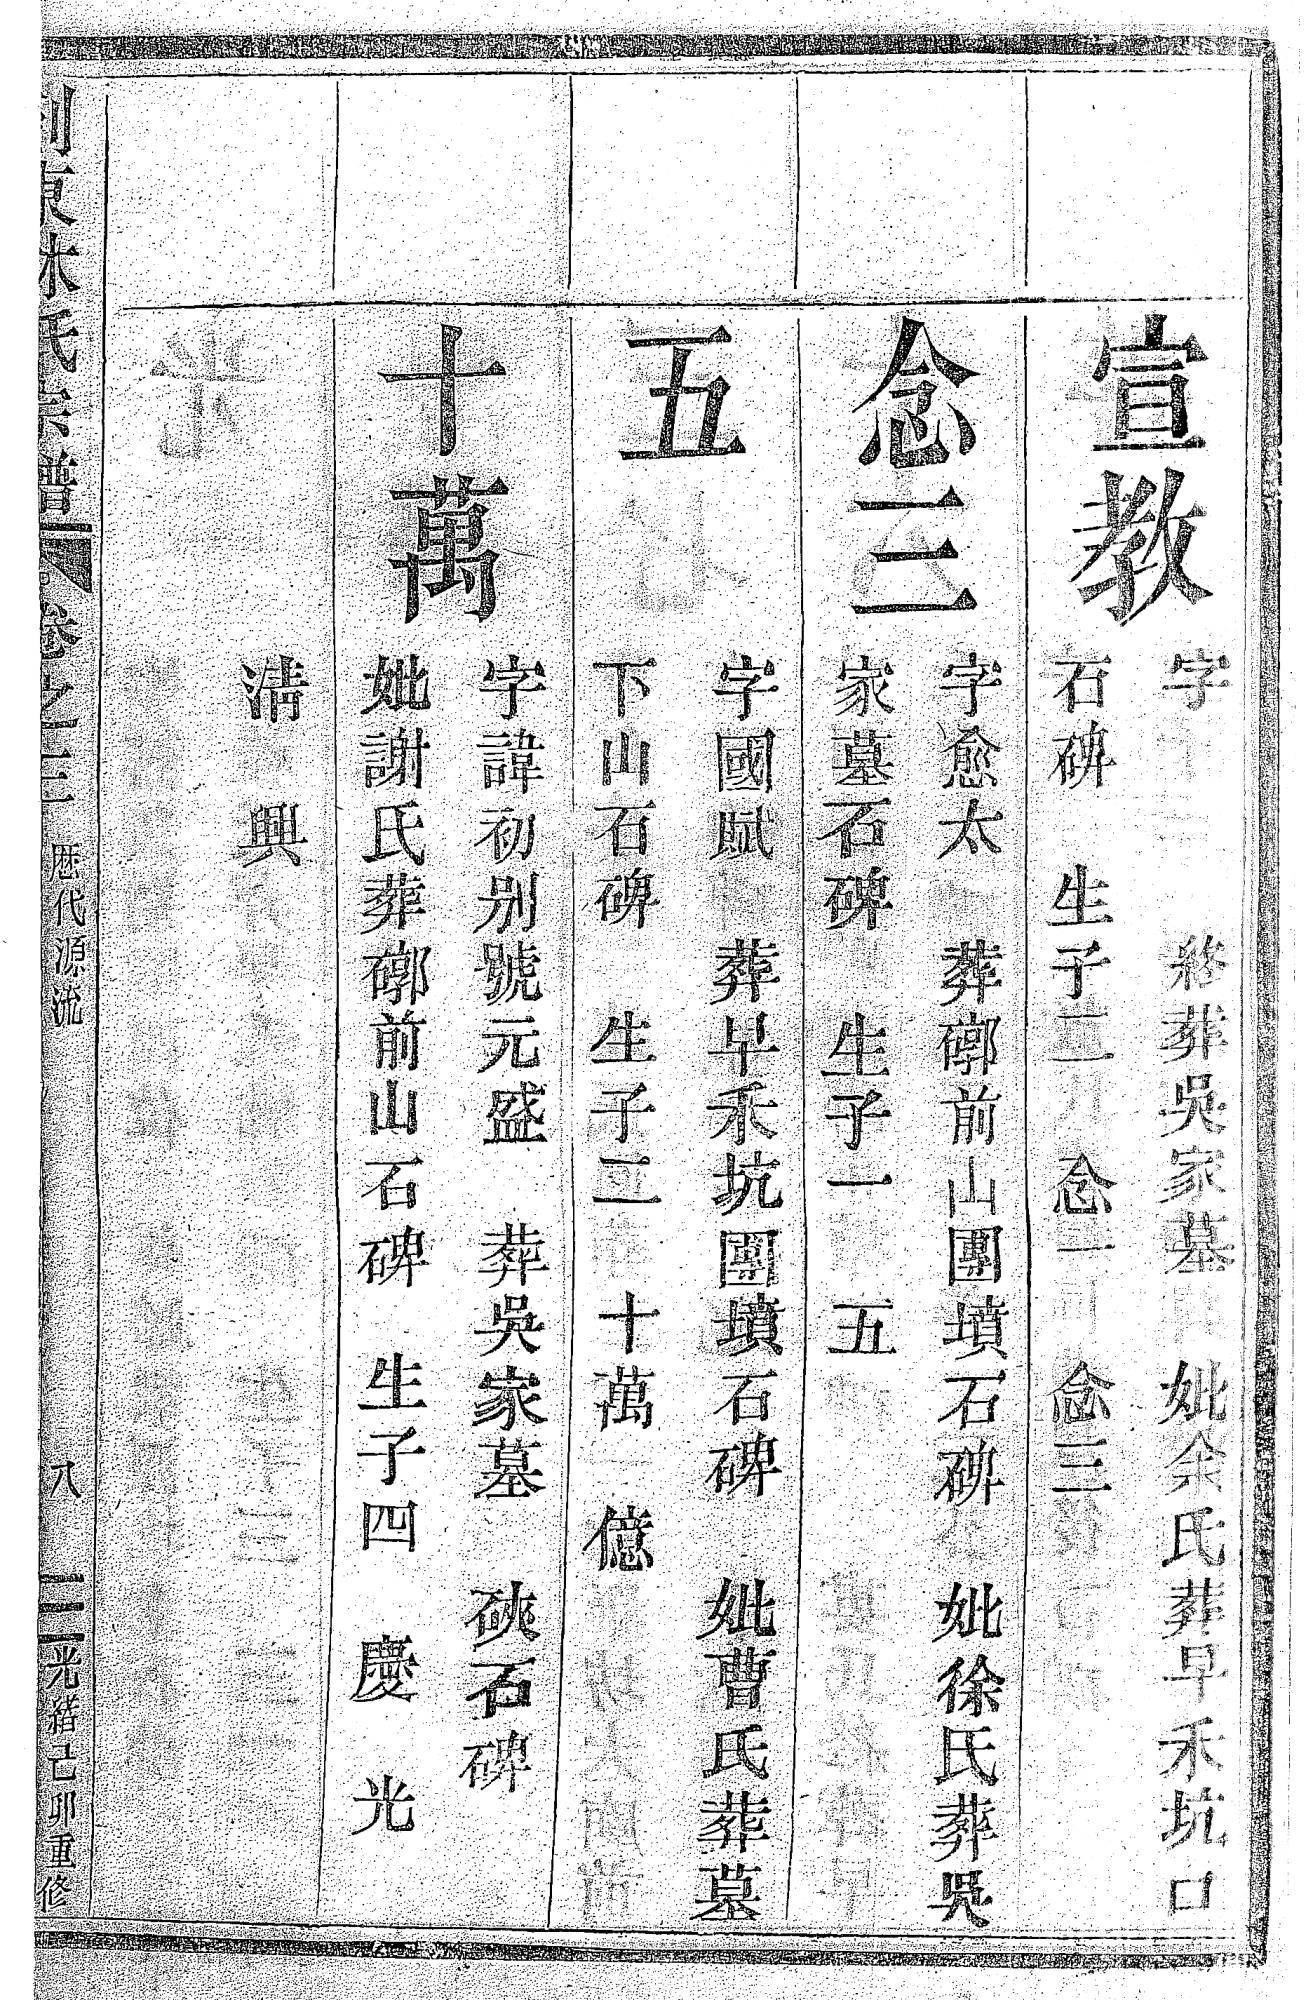 宣教
字 終葬吳家墓 妣余氏葬早禾坑口
石碑 生子二 念一 念三
念三
字愈太 葬𥕏前山團墳石碑 妣徐氏葬吳
家墓石碑 生子一 五
五
字國賦 葬早禾坑團墳石碑 妣曹氏葬墓
下山石碑 生子二 十萬 億
十萬
字諱初別號元盛 葬吳家墓 硤石碑
妣謝氏葬𥕏前山石碑 生子四 慶 光
淸 興
東林氏宗譜 卷之三 歷代源流 八 光緒己卯重修